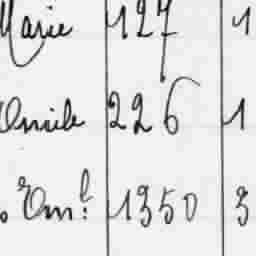 Marie 127 1
Emile 226 1
Em! 1350 3